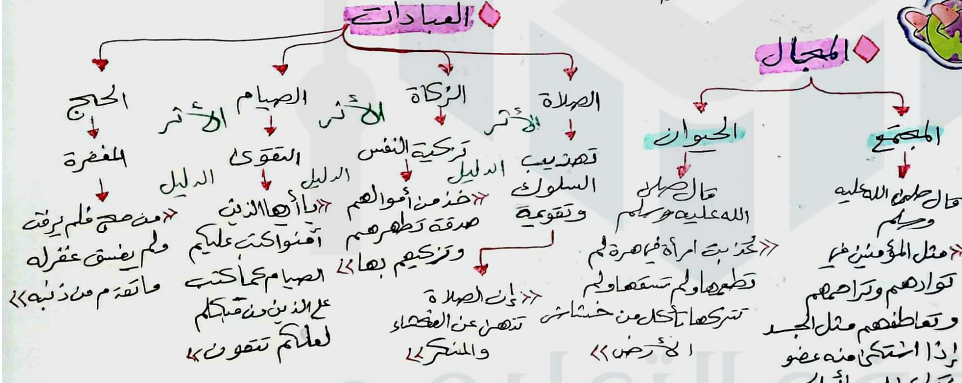 المجال
المجتمع
قال صلى الله عليه
وسلم
«مثل المؤمنين في
توادهم وتراحمهم
وتعاطفهم مثل الجسد
إذا اشتكى منه عضو
الحيوان
قال صلى
الله عليه وسلم
«عُذبت امرأة في هرة لم
تطعمها ولم تسقها ولم
تتركها تأكل من خشاش
الأرض»
العبادات
الصلاة
الأثر
تهذيب
السلوك
وتقويمة
«إن الصلاة
تنهى عن الفحشاء
والمنكر»
الزكاة
الأثر
تزكية النفس
الدليل
«خذ من أموالهم
صدقة تطهرهم
وتزكيهم بها»
الصيام
الأثر
التقوى
الدليل
«يا أيها الذين
آمنوا كتب عليكم
الصيام كما كتب
على الذين من قبلكم
لعلكم تتقون»
الحج
المغفرة
الدليل
«من حج فلم يرفث
ولم يفسق غفر له
ما تقدم من ذنبه»